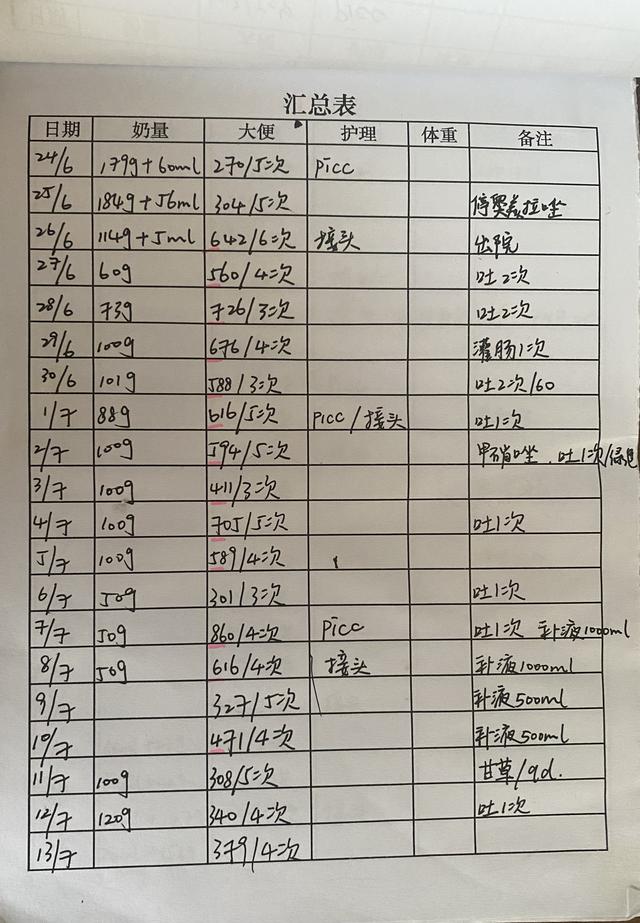 汇总表
日期 奶量 大便 护理 体重 备注
24/6 179g+60ml 270/5次 Picc
25/6 184g+56ml 304/5次 停奥美拉唑
26/6 114g+5ml 642/6次 接头 出院
27/6 60g 560/4次 吐2次
28/6 73g 726/3次 吐2次
29/6 100g 676/4次 灌肠1次
30/6 101g 588/3次 吐2次/60
1/7 88g 616/5次 Picc/接头 吐1次
2/7 100g 594/5次 甲硝唑、吐1次/绿色
3/7 100g 411/3次
4/7 100g 705/5次 吐1次
5/7 100g 589/4次
6/7 50g 301/3次 吐1次
7/7 50g 860/4次 Picc 吐1次 补液1000ml
8/7 50g 616/4次 接头 补液1000ml
9/7 327/5次 补液500ml
10/7 471/4次 补液500ml
11/7 100g 308/5次 甘草/qd.
12/7 120g 340/4次 吐1次
13/7 379/4次